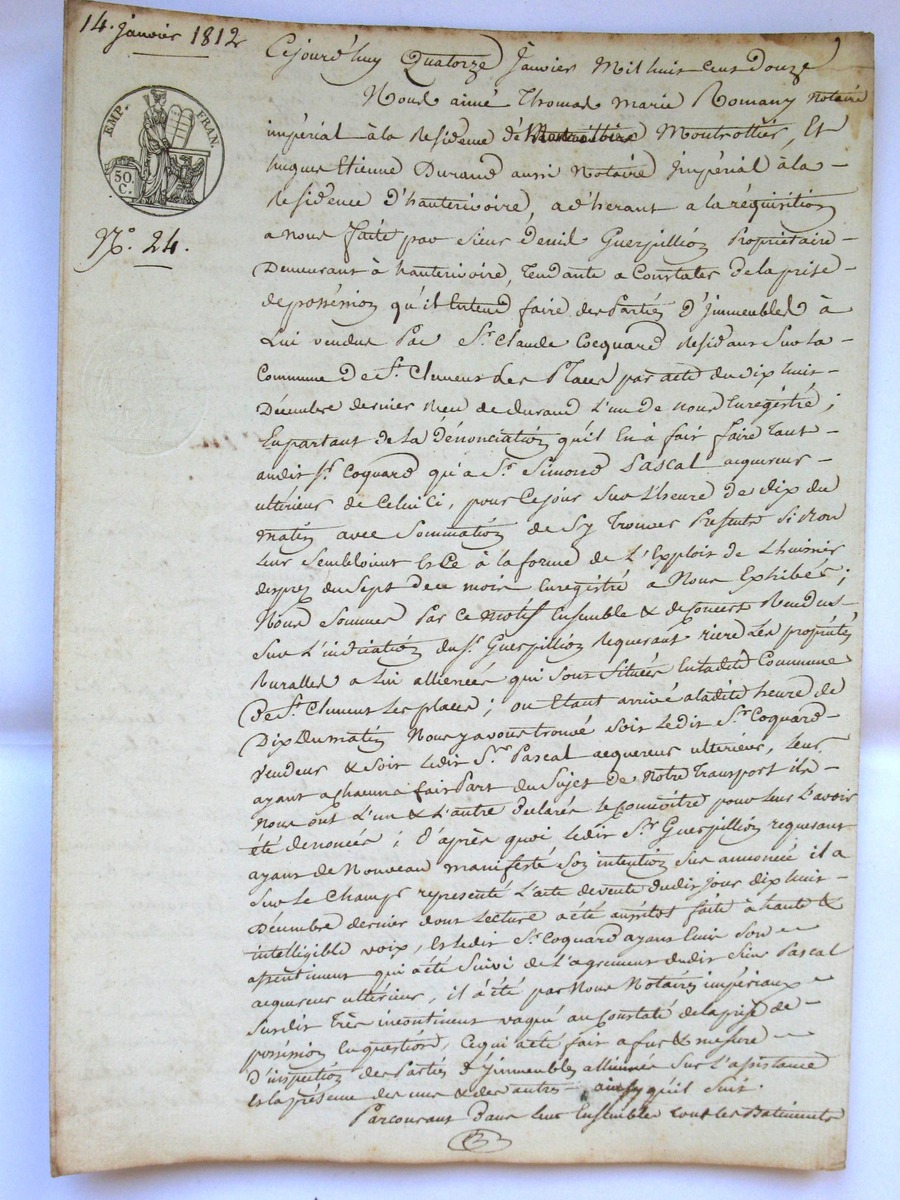 14. Janvier 1812
Cejourd'huy Quatorze Janvier Mil huit cent douze
Nous aimé Thomas Marie Romany Notaire
EMP. FRAN.
50 C.
impérial à la Residence de Montrottier, Et
hugues Etienne Durand aussi Notaire Impérial à la
Residence d'hauterivoire, adhérant a la réquisition
N.o 24.
a nous faite par sieur Denis Guerpillion Propriétaire
Demeurant à hauterivoire, Tendante a Constater de la prise
de possession qu'il Entend faire des Parties d'Immeubles à
Lui vendus Par Sr. Claude Cocquard Residant Sur la
Commune de St. Clement des Places par acte du dix huit
Décembre dernier Reçu de durand L'un de nous Enregistré;
En partant de la dénonciation qu'il En à fait faire Tant
audit Sr. Coquard qu'a Sr. Simond Pascal acquereur
ultérieur de Celui Ci, pour Cejour Sur L'heure de dix du
matin avec Sommation de S'y Trouver Présents Si Bon
Leur Sembloient Et Ce à la forme de L'Exploit de L'huissier
desprez du Sept de ce mois Enregistré a Nous Exhibés;
Nous Sommes Par Ce motif Ensemble & de Concert Rendus
Sur L'indication du Sr. Guerpillion Requerant riere Les propriétés
Ruralles a Lui alliénées qui Sont Situées En ladite Commune
de St. Clement Les places; ou Etant arrivé a ladite heure de
Dix du matin Nous y avons trouvé Soit Ledit Sr. Coquard
Vendeur & Soit Ledit Sr. Pascal acquereur ulterieur, Leur
ayant a chacun fait Part du Sujet de Notre Transport ils
Nous ont L'un & L'autre declarés le Connoitre pour leur L'avoir
été denoncés; d'après quoi Ledit Sr. Guerpillion requerant
ayant de Nouveau manifesté Son intention Sus annoncée il a
Sur le Champs représenté L'acte de vente dudit Jour dix huit
Décembre dernier dont Lecture a été aussitot faite à haute &
intelligible voix, Et Ledit Sr. Coquard ayant Emis Son
assentiment qui a été Suivi de L'agrement dudit Sieur Pascal
acquereur ultérieur, il a été par Nous Notaires impériaux
Susdit Très incontinent vaqué au Constaté de la prise de
possession En question, Ce qui a été fait a fur & mesure
d'inspection des Parties d'Immeubles alliennés Sur L'assistance
Et la présence des uns & des autres ainsy qu'il Suit.
Parcourant Dans leur Ensembles tout les Batiments